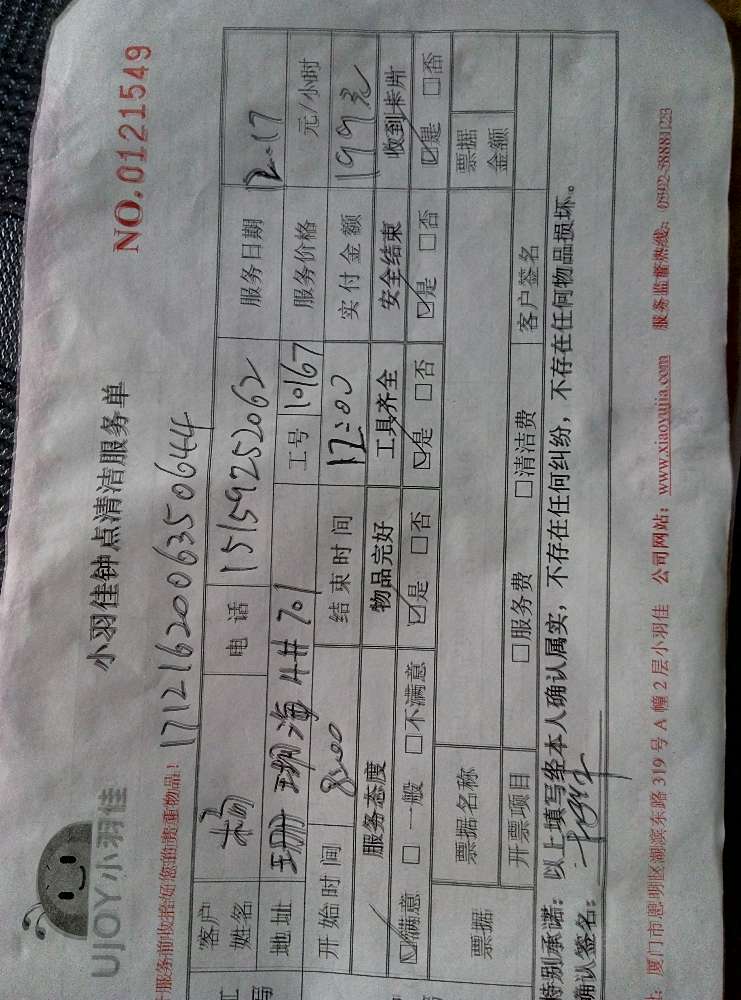 UJOY小羽佳
小羽佳钟点清洁服务单
NO.0121549
服务前收拾好您的贵重物品！
1712162006350644
客户姓名 杨 电 话 15159252062 服务日期 12.17
地址 珊瑚海 4# 701 工号 10167 服务价格 元/小时
开 始 时 间 8:00 结 束 时 间 12:00 实 付 金 额 199元
服务态度 物品完好 工具齐全 安全结束 收到卡片
☑满意 □ 一般 □不满意 ☑是 □否 ☑是 □否 ☑是 □否 ☑是 □否
票据 票据名称 票据金额
开票项目 □服务费 □清洁费 客户签名
特别承诺：以上填写经本人确认属实，不存在任何纠纷，不存在任何物品损坏。
确认签名：
厦门市思明区湖滨东路 319 号 A 幢 2 层小羽佳 公司网站：www.xiaoyujia.com 服务监督热线：